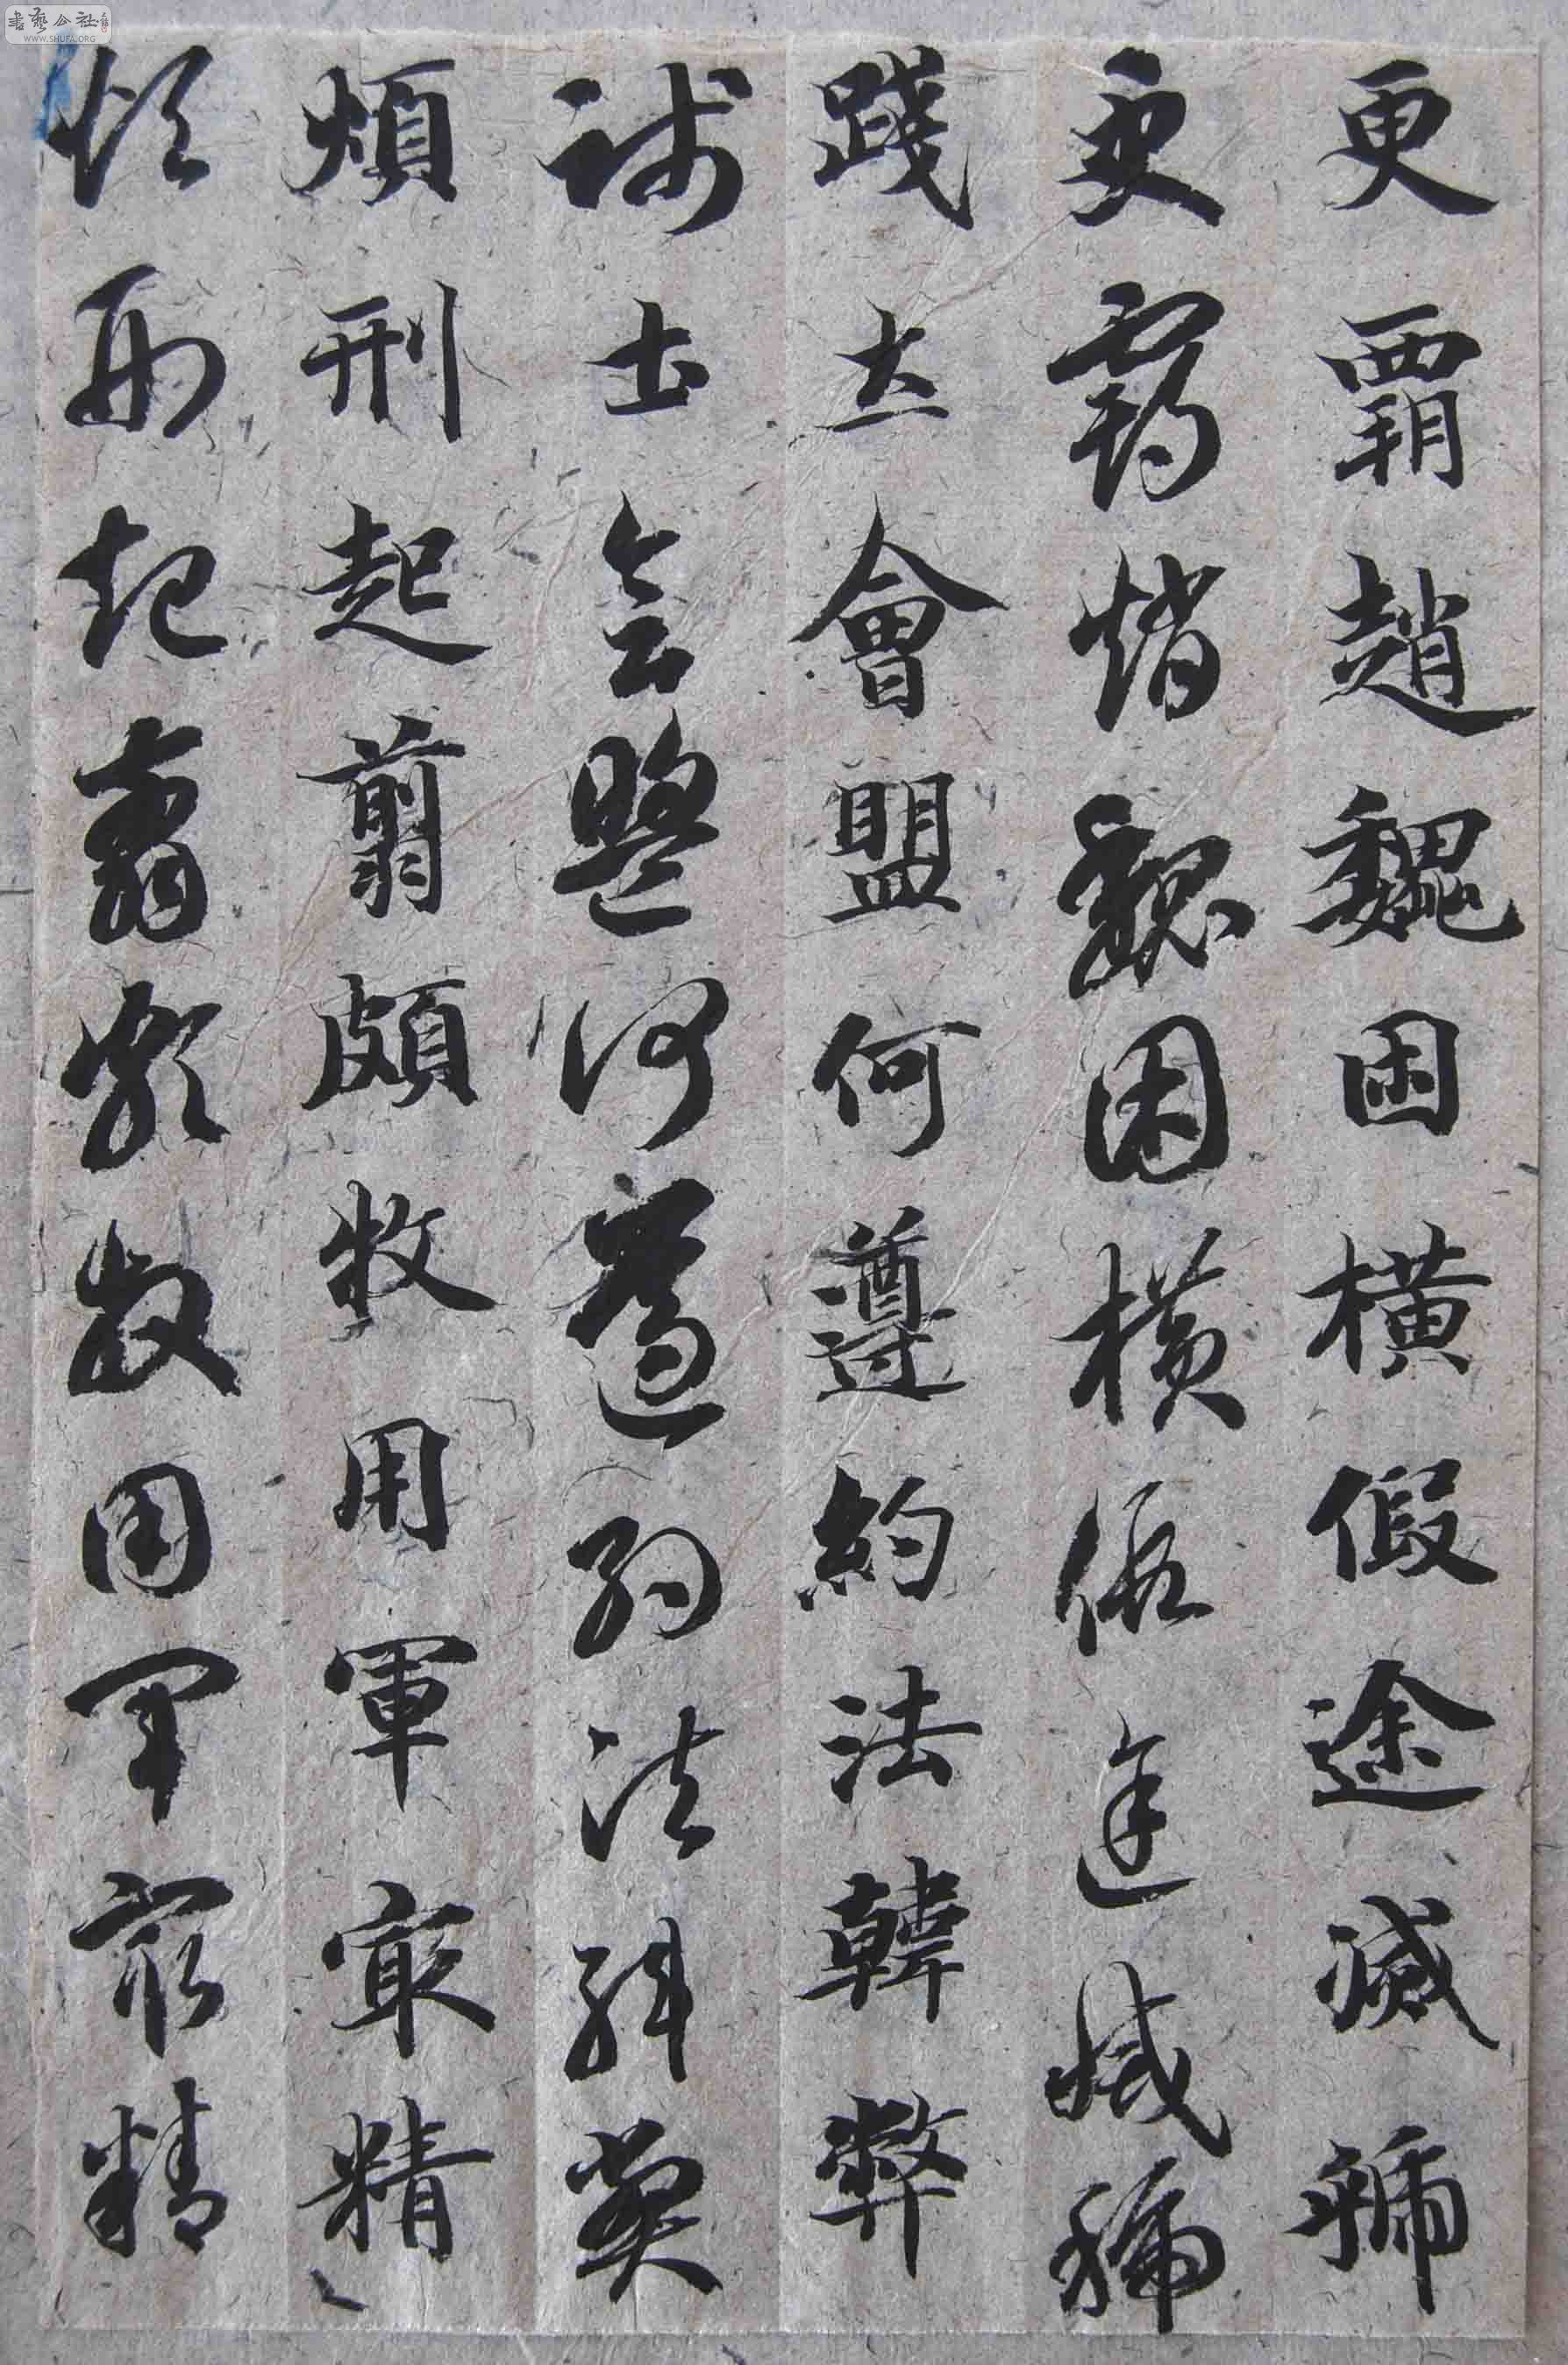 書藝公社
WWW.SHUFA.ORG
更覇趙魏困橫假途滅虢
更覇趙魏困橫假途滅虢
踐土會盟何遵約法韓弊
踐土會盟何遵約法韓弊
煩刑起翦頗牧用軍冣精
煩刑起翦頗牧用軍冣精